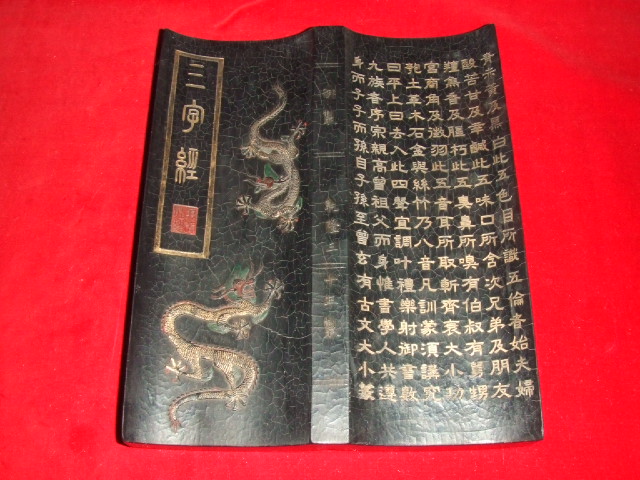 三字經
青赤黃及黑白此五色目所識五倫者始夫婦
酸苦甘及辛鹹此五味口所含次兄弟及朋友
羶焦香及腥朽此五臭鼻所嗅有伯叔有舅甥
宮商角及徵羽此五音耳所取斬齊衰大小功
匏土革木石金與絲竹乃八音凡訓蒙須講究
曰平上曰去入此四聲宜調叶禮樂射御書數
九族者序宗親高曾祖父而身惟書學人共遵
身而子子而孫自子孫至曾玄有古文大小篆